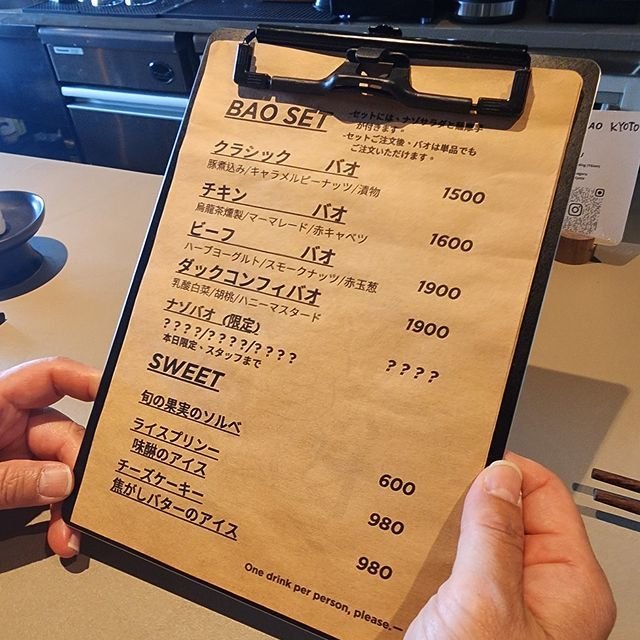 BAO SET
-セットには、ナゾサラダと
が付きます。
-セットご注文後、バオは単品でも
ご注文いただけます。
クラシック バオ
豚煮込み/キャラメルピーナッツ/漬物
1500
チキン バオ
烏龍茶燻製/マーマレード/赤キャベツ
1600
ビーフ バオ
ハーブヨーグルト/スモークナッツ/赤玉葱
1900
ダックコンフィバオ
乳酸白菜/胡桃/ハニーマスタード
1900
ナゾバオ (限定)
????/????/????
本日限定、スタッフまで
????
SWEET
旬の果実のソルベ
600
ライスプリンー
味醂のアイス
980
チーズケーキー
焦がしバターのアイス
980
One drink per person, please.—
AO KYOTO